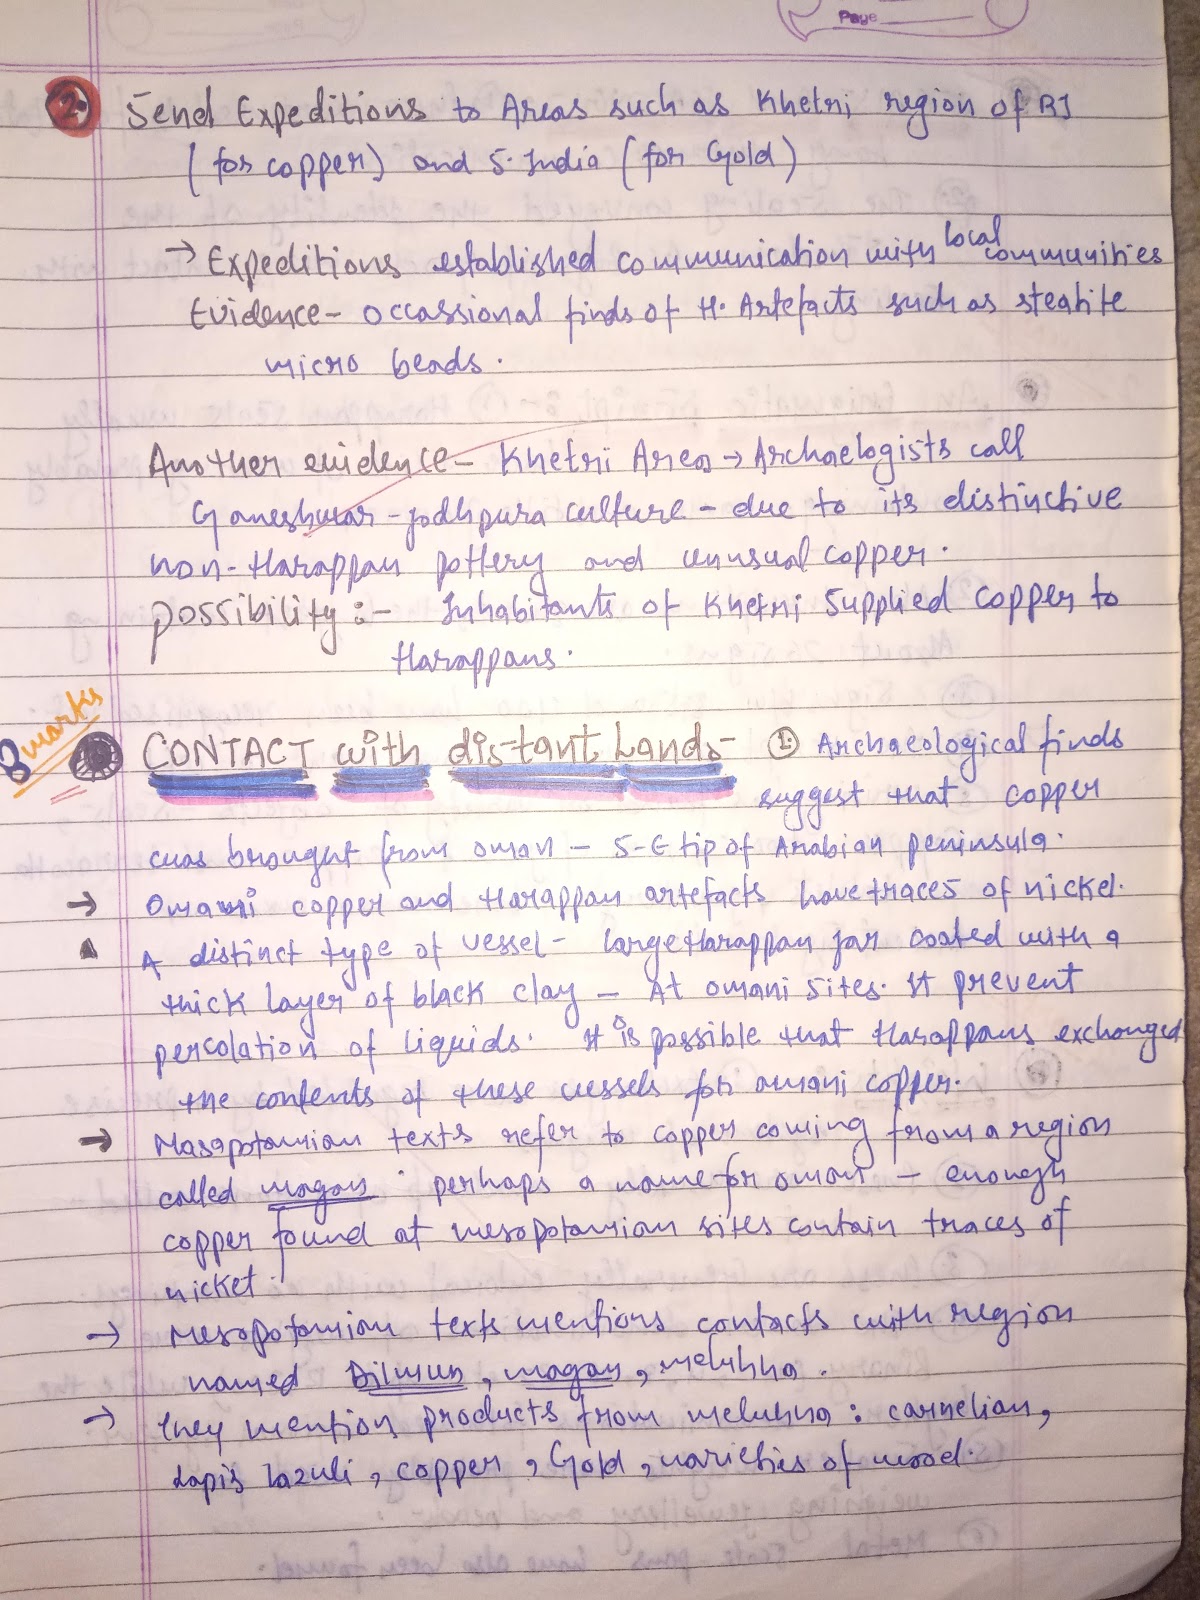 Page
2. Send Expeditions to Areas such as Khetri region of RJ
(for copper) and S. India (for Gold)
→ Expeditions established communication with local communities
Evidence - occassional finds of H. Artefacts such as steatite
micro beads.
Another evidence - Khetri Area → Archaelogists call
Ganeshwar - Jodhpura culture - due to its distinctive
non-Harappan pottery and unusual copper.
possibility :- Inhabitants of Khetri Supplied copper to
Harappans.
8 marks
CONTACT with distant Lands - 1. Archaeological finds
suggest that copper
was brought from oman - S-E tip of Arabian peninsula.
→ Omani copper and Harappan artefacts have traces of nickel.
A distinct type of vessel - large Harappan jar coated with a
thick layer of black clay - At omani sites. It prevent
percolation of liquids. It is possible that Harappans exchanged
the contents of these vessels for omani copper.
→ Masopotamian texts refer to copper coming from a region
called magan. perhaps a name for oman - enough
copper found at mesopotamian sites contain traces of
nicket.
→ Mesopotamian texts mentions contacts with region
named Dilmun, magan, meluhha.
→ they mention products from meluhha : carnelian,
Lapis lazuli, copper, Gold, varieties of wood.